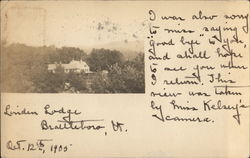 I was also sorry
to miss "saying
good bye to you,
and shall hope
to see you when
I return. This
view was taken
by Miss Kelsey's
camera.
Linden Lodge
Brattleboro, Vt.
Oct. 12th, 1905